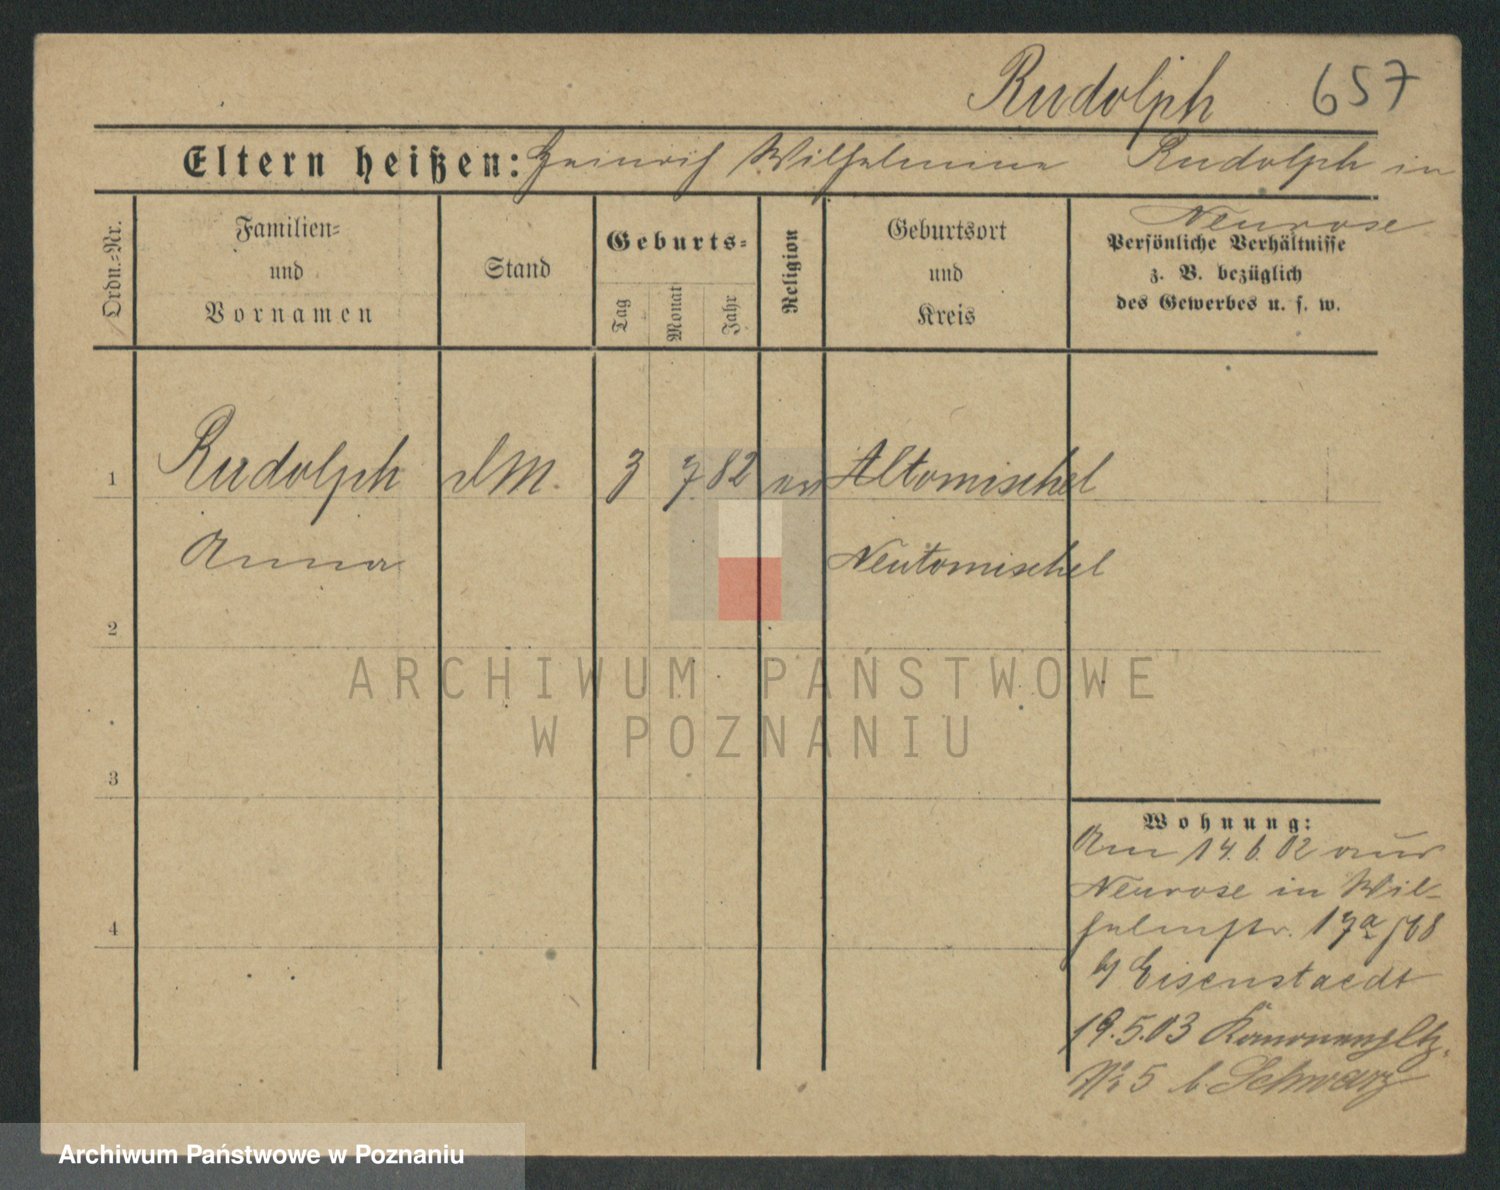 Rudolph 657
Eltern heißen: Heinrich Wilhelmine Rudolph in
Neurose
Ordn.-Nr.
Familien-
und
Vornamen
Stand
Geburts-
Tag
Monat
Jahr
Religion
Geburtsort
und
Kreis
Persönliche Verhältnisse
z. B. bezüglich
des Gewerbes u. s. w.
1 Rudolph DM. 3 7. 82 ev Altomischel
Anna Neutomischel
2
3
4
Wohnung:
Am 14. 6. 02 aus
Neurose in Wil-
helmstr. 17a
b/ Eisenstaedt
19.5.03 Kanonenpltz.
No 5 b. Schwarz
ARCHIWUM PAŃSTWOWE
W POZNANIU
Archiwum Państwowe w Poznaniu